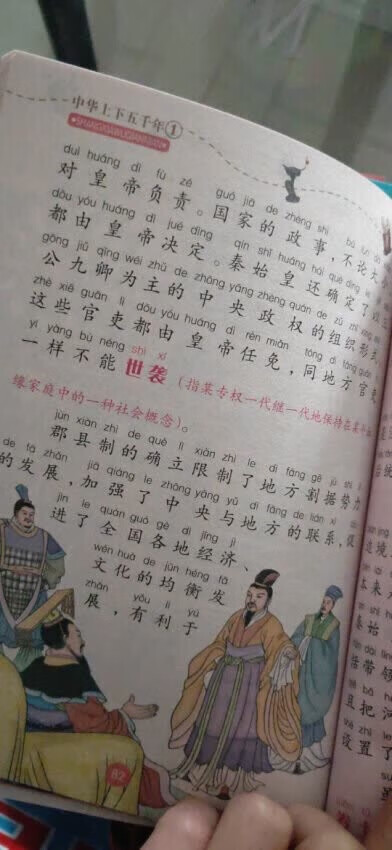 中华上下五千年①
duì huáng dì fù zé guó jiā de zhèng shì
对皇帝负责。国家的政事，不论大
dōu yóu huáng dì jué dìng qín shǐ huáng hái què dìng
都由皇帝决定。秦始皇还确定了以
gōng jiǔ qīng wéi zhǔ de zhōng yāng zhèng quán de zǔ zhī xíng
公九卿为主的中央政权的组织形式
zhè xiē guān lì dōu yóu huáng dì rèn miǎn tóng dì fāng guān
这些官吏都由皇帝任免，同地方官吏
yí yàng bù néng shì xí
一样不能世袭（指某专权一代继一代地保持在某个血
缘家庭中的一种社会概念）。
jùn xiàn zhì de què lì xiàn zhì le dì fāng gē jù shì lì
郡县制的确立限制了地方割据势力
de fā zhǎn jiā qiáng le zhōng yāng yǔ dì fāng de lián xì
的发展，加强了中央与地方的联系，促
jìn le quán guó gè dì jīng jì
进了全国各地经济、
wén huà de jūn héng fā
文化的均衡发
zhǎn yǒu lì yú
展，有利于
82
造境
本来
秦始
带领
且把河
设置了